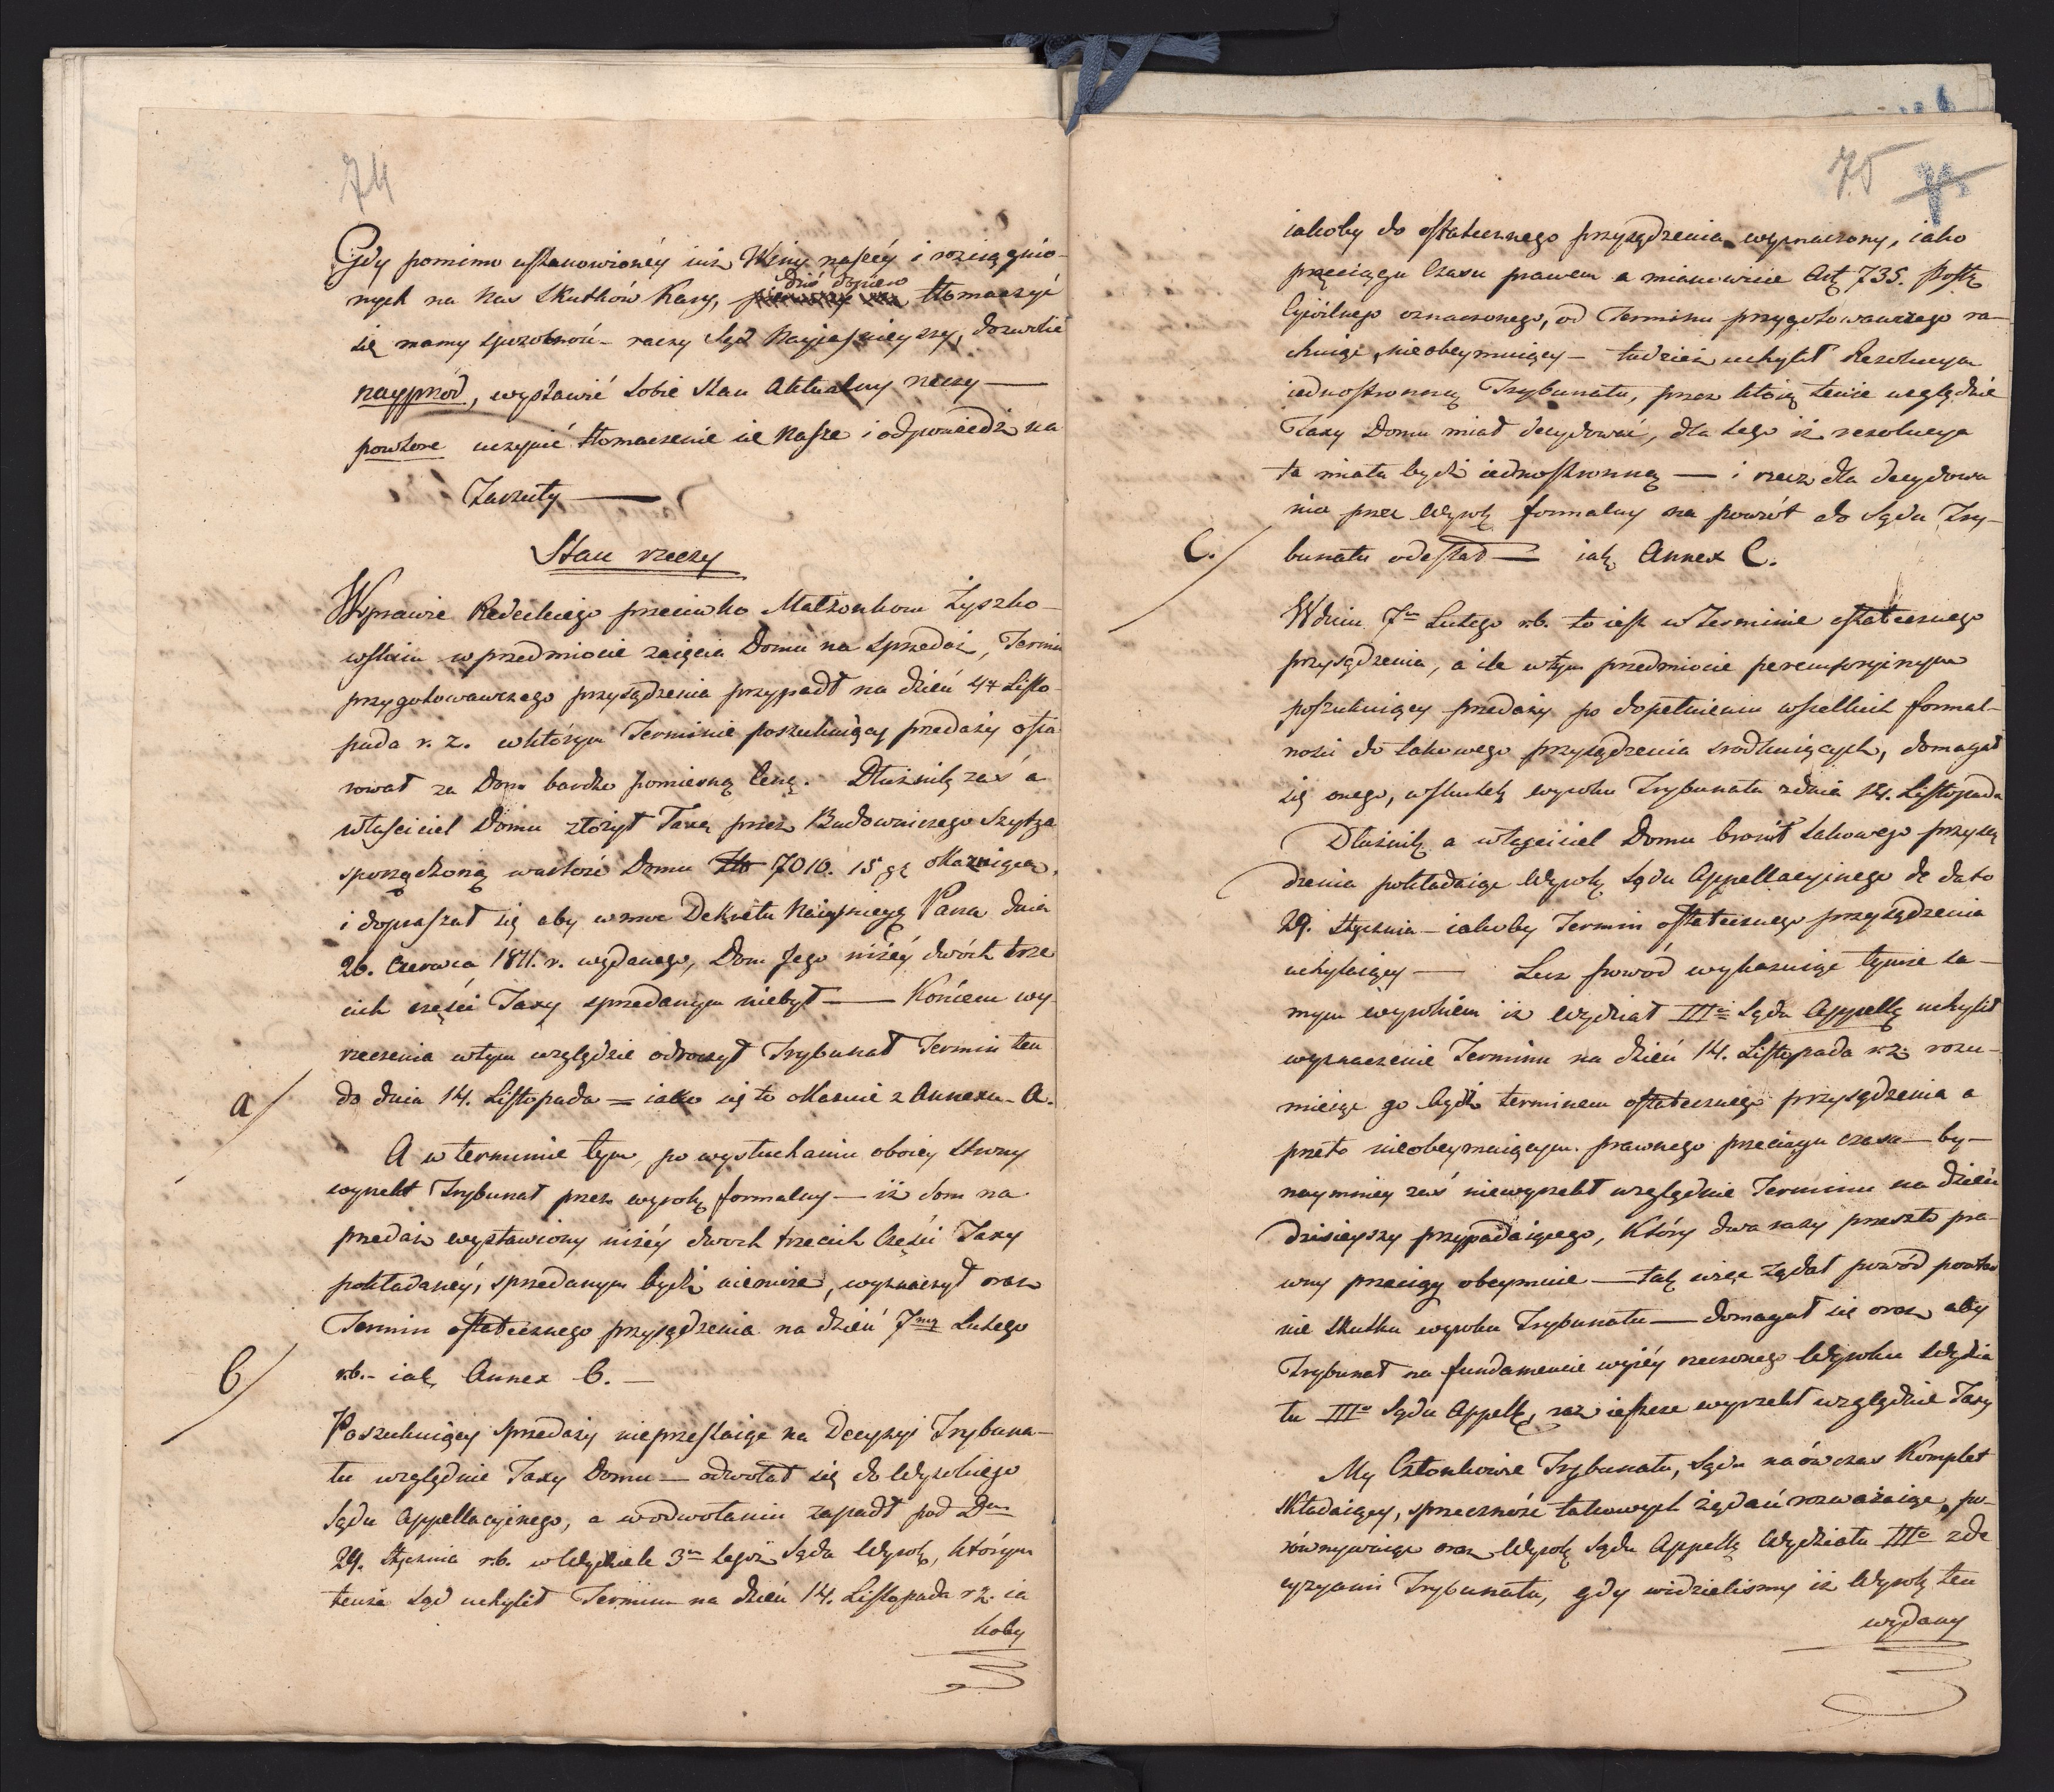 74
Gdy pomimo ustanowionéy iuż Winy naszéy i rozciągnio-
nych na Nas Skutków Kary, dziś dopiero tłomaczyć
się mamy sposobność - raczy Sąd Nayjaśnieyszy, dozwolić
nayprzód, wystawić sobie Stan Aktualny rzeczy —
powtóre uczynić tłomaczenie się Nasze i odpowiedź na
Zarzuty —
Stan rzeczy
W sprawie Redeckiego przeciwko Małżonkom Zyszko-
wskim w przedmiocie zaięcia Domu na sprzedaż, Termin
przygotowawczego przysądzenia przypadł na dzień Listo-
pada r. z. w którym Terminie poszukuiący przedaży ofia-
rował za Dom bardzo pomierną Cenę. Dłużnik zaś a
właściciel Domu złożył Taxę przez Budowniczego Szytza
sporządzoną wartość Domu 7010. 15 gr okazuiącą,
i dopraszał się aby w moc Dekretu Nayjaśnieyszego Pana dnia
26. Czerwca 1811. r. wydanego, Dom Jego niżéy dwóch trze
cich części Taxy sprzedanym niebył — Końcem wy-
rzeczenia wtym względzie odroczył Trybunał Termin ten
a/ do dnia 14. Listopada = iako się to okazuie z Annexu - A.
A w terminie tym, po wysłuchaniu oboiey strony
wyrzekł Trybunał przez wyrok formalny — iż dom na
przedaż wystawiony niżéy dwoch trzecich Części Taxy
pokładanéy, sprzedanym bydź niemoże, wyznaczył oraz
Termin ostatecznego przysądzenia na dzień 7my Lutego
b/ r.b. - iak Annex B. —
Poszukuiący sprzedaży nieprzestaiąc na Decyzyi Trybuna-
łu względnie Taxy Domu — odwołał się do Wysokiego
Sądu Appellacyinego, a w odwołaniu zapadł pod Dem
29. Stycznia r.b. w Wydziale 3m tegoż Sądu Wyrok, którym
tenże Sąd uchylił Termin na dzień 14. Listopada r.z. ia
koby
75
iakoby do ostatecznego przysądzenia wyznaczony, iako
przeciągu Czasu prawem a mianowicie Art. 735. Post.
Cywilnego oznaczonego, od Terminu przygotowawczego ra-
chuiąc, nieobeymuiący — tudzież uchylił Rezolucyą
iednostronną Trybunału, przez którą tenże względnie
Taxy Domu miał decydować, dla tego iż rezolucya
ta miała bydź iednostronną — i rzecz dla decydowa
nia przez Wyrok formalny na powrót do Sądu Try-
C./ bunału odesłał — iak Annex C.
W dniu 7m Lutego r.b. to iest w Terminie ostatecznego
przysądzenia, a ile wtym przedmiocie peremtoryinym
poszukuiący przedaży po dopełnieniu wszelkich formal-
ności do takowego przysądzenia srodkuiących, domagał
się onego, wskutek wyroku Trybunału z dnia 14. Listopada
Dłużnik a właściciel Domu bronił takowego przysą
dzenia pokładaiąc Wyrok Sądu Appellacyinego de dato
29. Stycznia — iakoby Termin ostatecznego przysądzenia
uchylaiący — Lecz powód wykazuiąc tymże sa-
mym wyrokiem iż Wydział IIIci Sądu Appellk uchylił
wyznaczenie Terminu na dzień 14. Listopada r.z. rozu-
mieiąc go bydź terminem ostatecznego przysądzenia a
przeto nieobeymuiącym prawnego przeciągu czasu — by-
naymniey zaś niewyrzekł względnie Terminu na dzień
dzisieyszy przypadaiącego, Który dwa razy przeszło pra-
wny przeciąg obeymuie — tak więc żądał powód
nie skutku wyroku Trybunału — domagał się oraz aby
Trybunał na fundamencie wyżéy rzeczonego Wyroku Wydzia
łu IIIo Sądu Appellk, raz ieszcze wyrzekł względnie Taxy
My Członkowie Trybunału, Sądu naówczas Komplet
składaiący, sprzeczność takowych żądań rozważaiąc, po-
równywaiąc oraz Wyrok Sądu Appellk Wydziału IIIo z de
cyzyami Trybunału, gdy widzieliśmy iż Wyrok ten
wydany